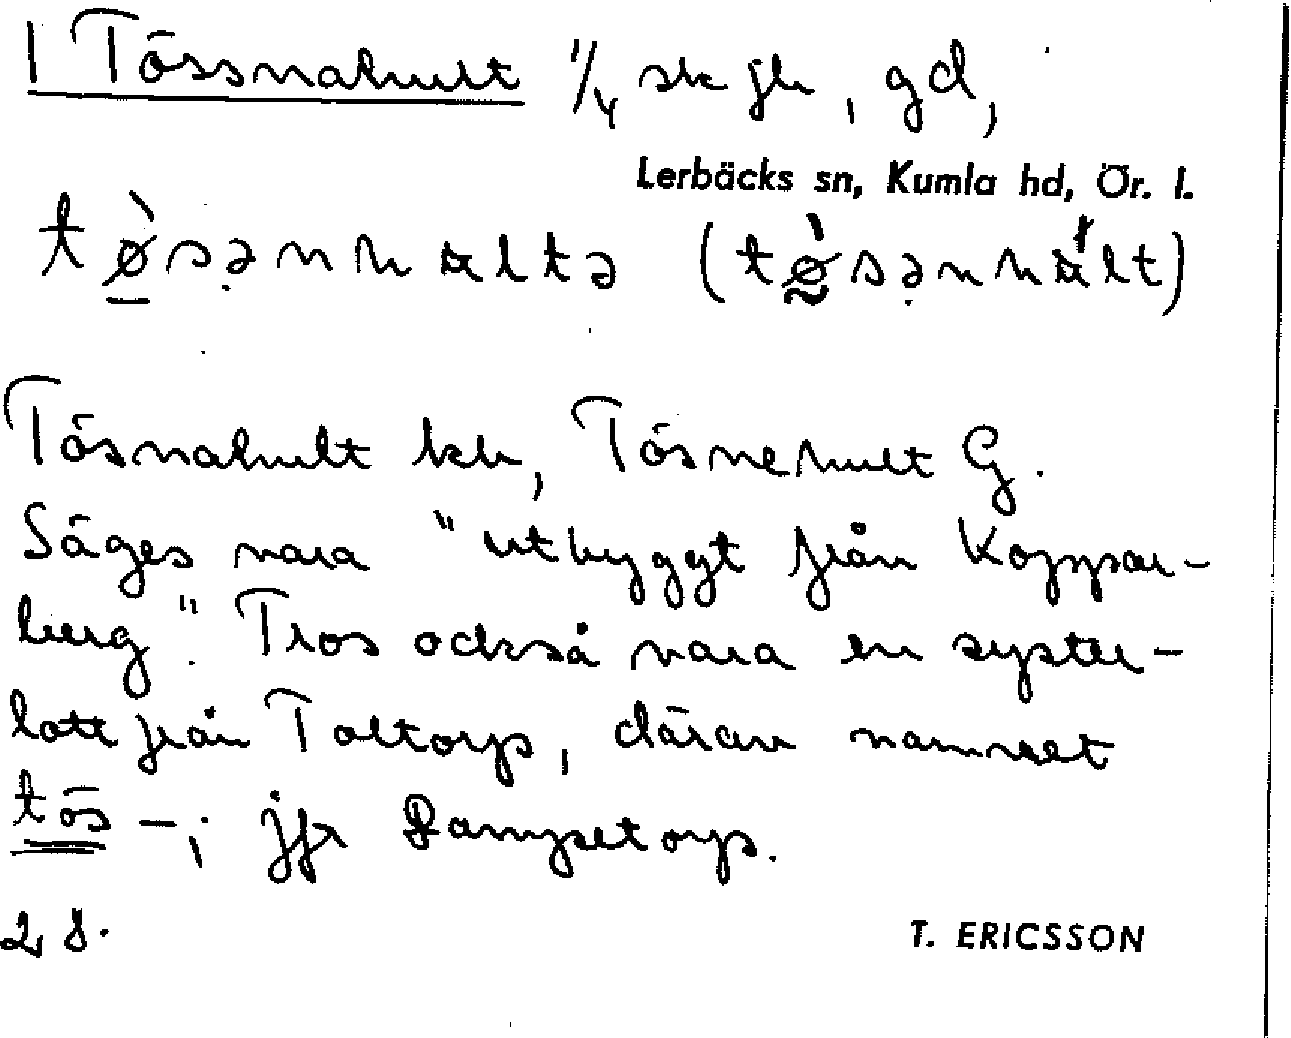 1 Tössnahult 1/4 sk fh, gd,
Lerbäcks sn, Kumla hd, Ör. l.
tø̀sənhultə (tø̀sənhúlt)
Tösnahult kh, Tösnehult G.
Säges vara "utbyggt från Koppar-
berg". Tros också vara en syster-
lott från Taltorp, därav namnet
tös -; jfr Rampetorp.
28.
T. ERICSSON